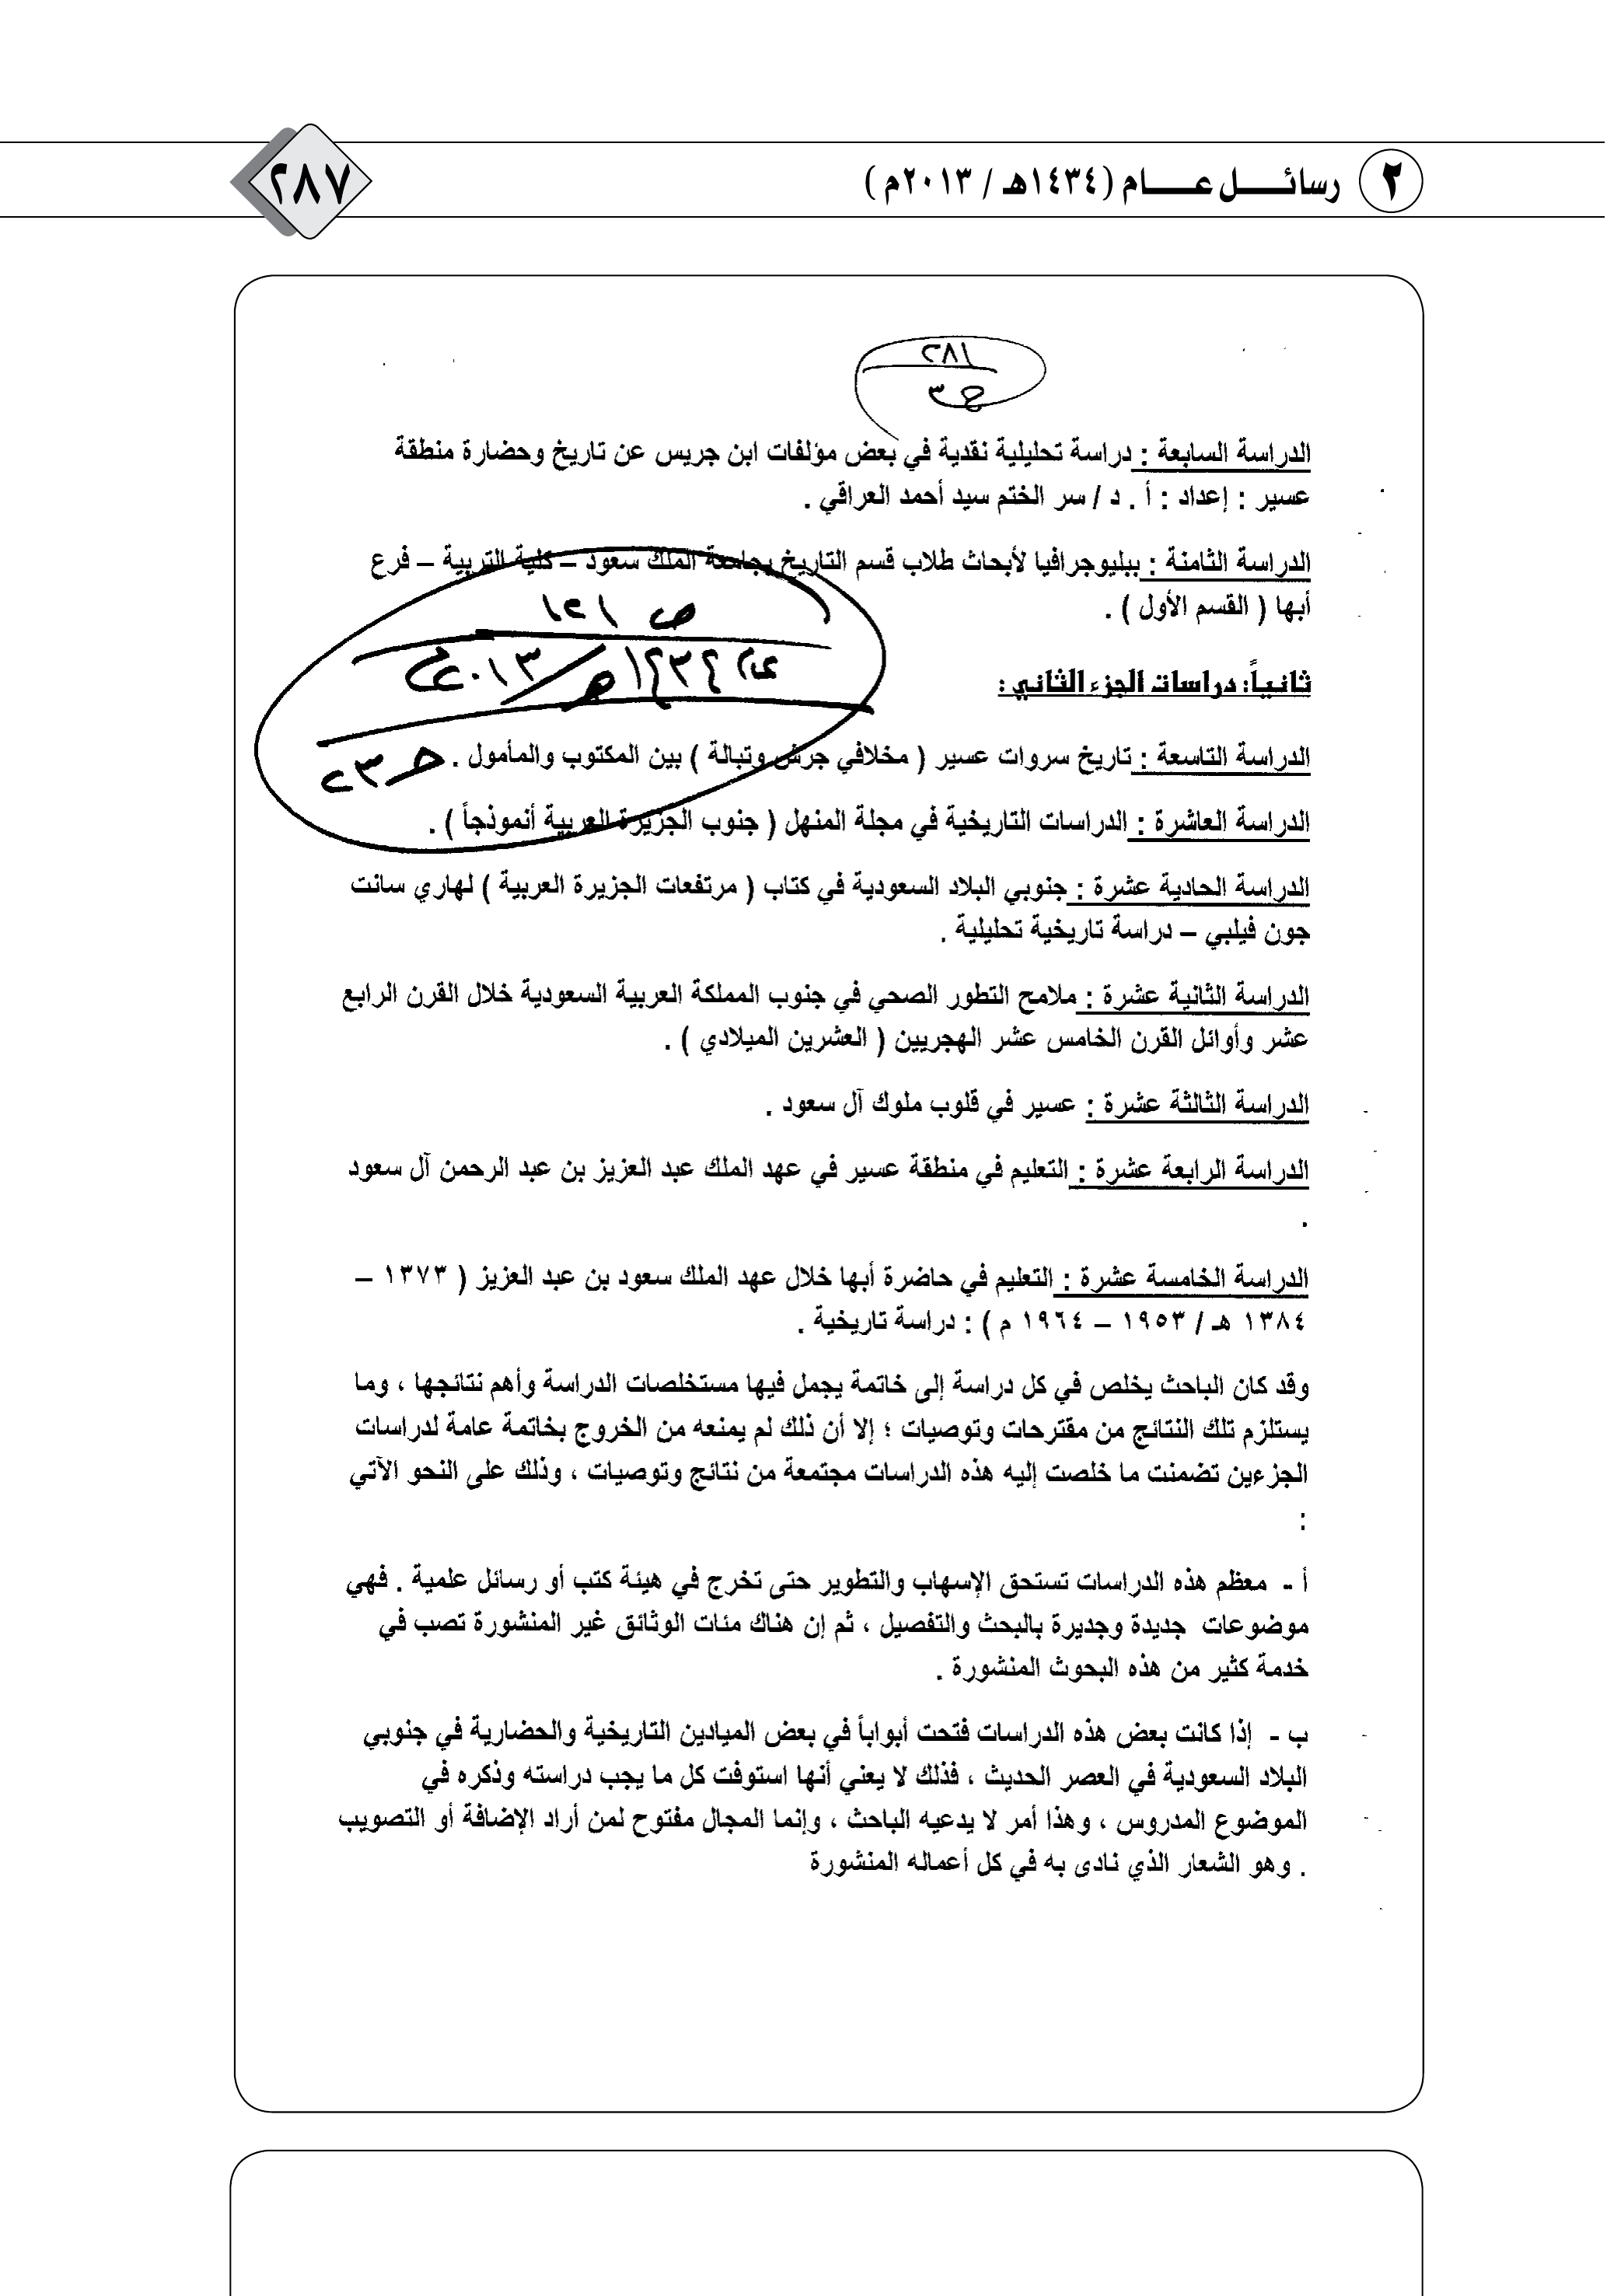 ٢ رسائــــل عــــــام (١٤٣٤هـ / ٢٠١٣م)
٢٨٧
٢٨١
ج ٣
الدراسة السابعة : دراسة تحليلية نقدية في بعض مؤلفات ابن جريس عن تاريخ وحضارة منطقة
عسير : إعداد : أ . د / سر الختم سيد أحمد العراقي .
الدراسة الثامنة : ببليوجرافيا لأبحاث طلاب قسم التاريخ بجامعة الملك سعود – كلية التربية – فرع
أبها ( القسم الأول ) .
ص ١٢١
١٤٣٤هـ/٢٠١٣م
ثانياً: دراسات الجزء الثاني :
الدراسة التاسعة : تاريخ سروات عسير ( مخلافي جرش وتبالة ) بين المكتوب والمأمول .
الدراسة العاشرة : الدراسات التاريخية في مجلة المنهل ( جنوب الجزيرة العربية أنموذجاً ) .
الدراسة الحادية عشرة : جنوبي البلاد السعودية في كتاب ( مرتفعات الجزيرة العربية ) لهاري سانت
جون فيلبي – دراسة تاريخية تحليلية .
الدراسة الثانية عشرة : ملامح التطور الصحي في جنوب المملكة العربية السعودية خلال القرن الرابع
عشر وأوائل القرن الخامس عشر الهجريين ( العشرين الميلادي ) .
الدراسة الثالثة عشرة : عسير في قلوب ملوك آل سعود .
الدراسة الرابعة عشرة : التعليم في منطقة عسير في عهد الملك عبد العزيز بن عبد الرحمن آل سعود
.
الدراسة الخامسة عشرة : التعليم في حاضرة أبها خلال عهد الملك سعود بن عبد العزيز ( ١٣٧٣ –
١٣٨٤ هـ / ١٩٥٣ – ١٩٦٤ م ) : دراسة تاريخية .
وقد كان الباحث يخلص في كل دراسة إلى خاتمة يجمل فيها مستخلصات الدراسة وأهم نتائجها ، وما
يستلزم تلك النتائج من مقترحات وتوصيات ؛ إلا أن ذلك لم يمنعه من الخروج بخاتمة عامة لدراسات
الجزءين تضمنت ما خلصت إليه هذه الدراسات مجتمعة من نتائج وتوصيات ، وذلك على النحو الآتي
:
أ - معظم هذه الدراسات تستحق الإسهاب والتطوير حتى تخرج في هيئة كتب أو رسائل علمية . فهي
موضوعات جديدة وجديرة بالبحث والتفصيل ، ثم إن هناك مئات الوثائق غير المنشورة تصب في
خدمة كثير من هذه البحوث المنشورة .
ب - إذا كانت بعض هذه الدراسات فتحت أبواباً في بعض الميادين التاريخية والحضارية في جنوبي
البلاد السعودية في العصر الحديث ، فذلك لا يعني أنها استوفت كل ما يجب دراسته وذكره في
الموضوع المدروس ، وهذا أمر لا يدعيه الباحث ، وإنما المجال مفتوح لمن أراد الإضافة أو التصويب
. وهو الشعار الذي نادى به في كل أعماله المنشورة